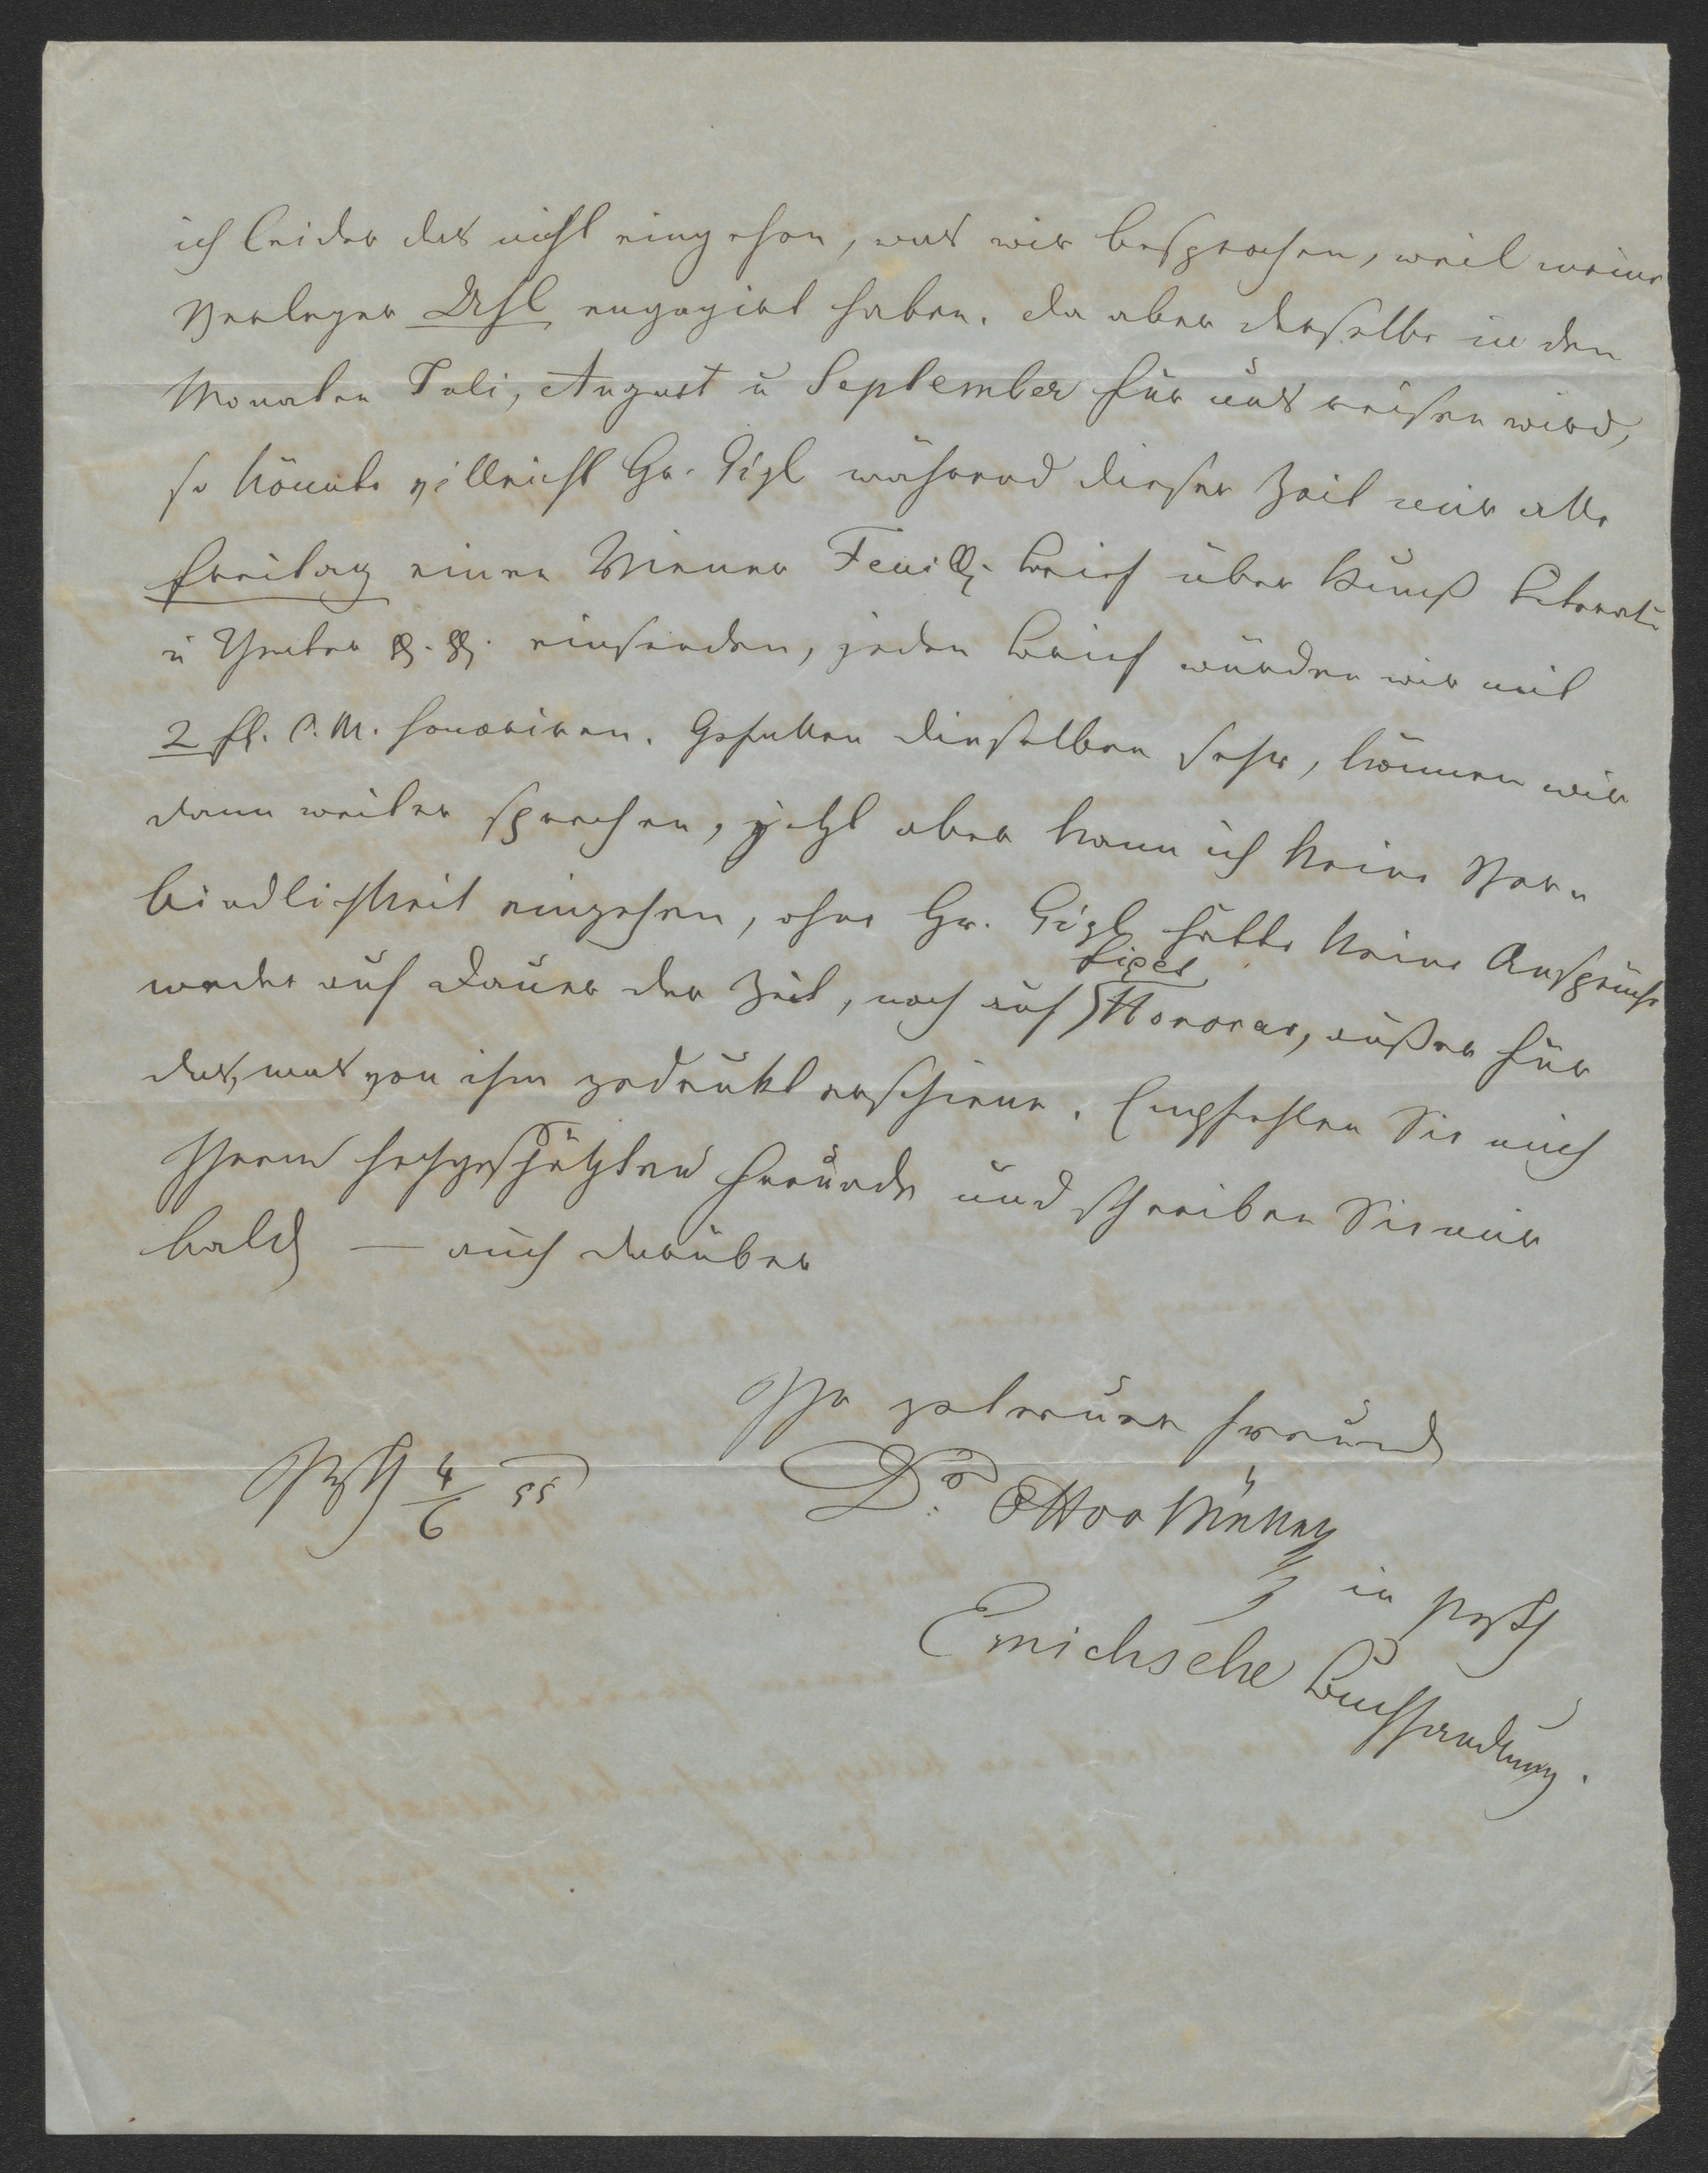 ich leider das nicht eingehen, was wir besprochen, weil meine
Verleger Uhl engagirt haben. Da aber derselbe in den
Monaten Juli, August u September für uns reisen wird,
so könnte villeicht Hr. Gigl während dieser Zeit mir alle
Freitag einen Wiener Feuill. Brief über Kunst Literatu
u Theater etc. etc. einsenden, jeden Brief würden wir mit
2 fl. C.M. honoriren. Gefallen dieselben sehr, können wir
dann weiter sprechen, jetzt aber kann ich keine Ver-
bindlichkeit eingehen, ohne Hr. Gigl hätte keine Ansprüche
weder auf Dauer der Zeit, noch auf fixes Honorar, außer für
das, was von ihm gedrukt erschiene. Empfehlen Sie mich
Ihrem hochgeschätzten Freunde und schreiben Sie mir
bald — auch darüber
Ihr getreuer Freund
Pesth 4/6 55
Dr. Otto
in Pesth
Emichsche Buchhandlung.